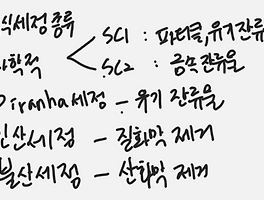 식세정종류
학적 < SC1 : 파티클, 유기잔류
SC2 : 금속잔류물
Piranha세정 – 유기 잔류물
인산세정 – 질화막 제거
불산세정 – 산화막 제거